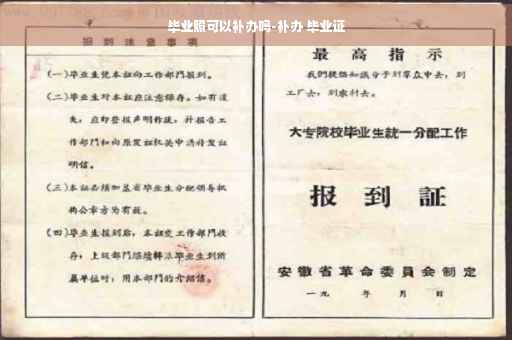 毕业照可以补办吗-补办 毕业证
报到注意事项
(一)毕业生凭本证向工作部门报到。
(二)毕业生对本证应注意保存。如有遗
失，应即登报声明作废，并报告工
作部门和向原发证机关申请补发证
明信。
(三)本证必须加盖省毕业生分配领导机
构公章方为有效。
(四)毕业生报到后，本证交工作部门收
存，上级部门继续转派毕业生到所
属单位时，用本部门的介绍信。
最高指示
我们提倡知识分子到群众中去，到
工厂去，到农村去。
大专院校毕业生統一分配工作
报到証
安徽省革命委員会制定
一九 年 月 日